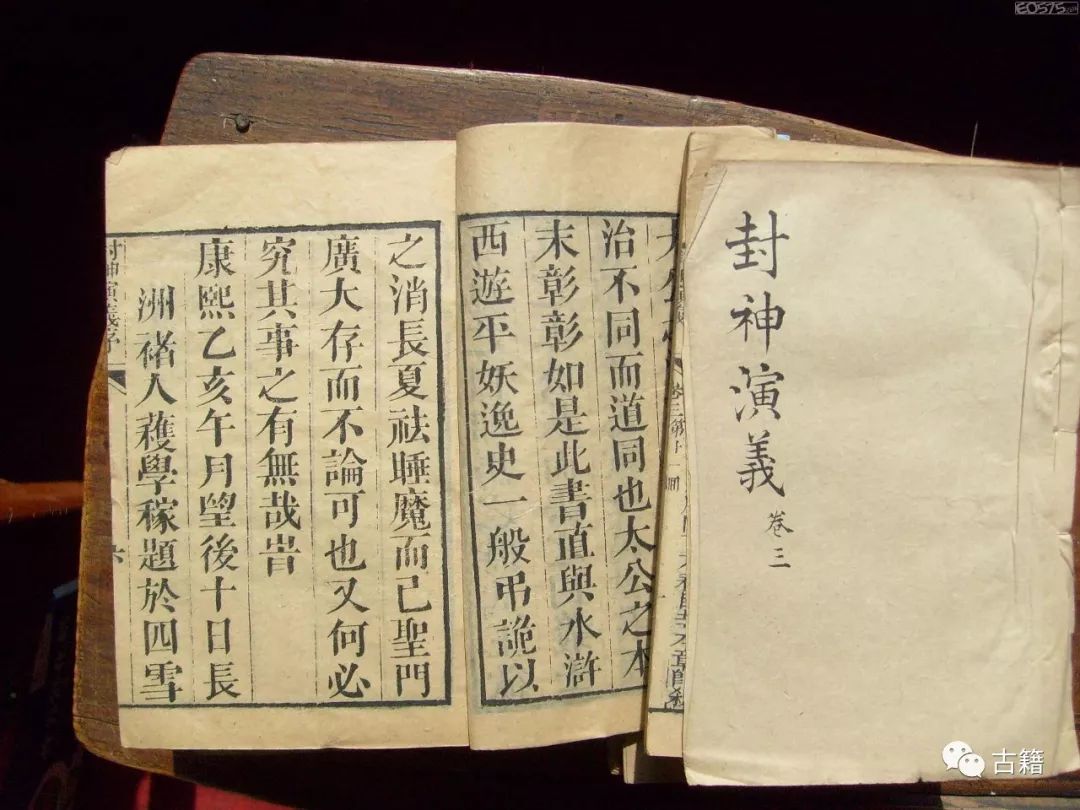 封神演義 卷三
治不同而道同也太公之本
末彰彰如是此書直與水滸
西遊平妖逸史一般弔詭以
之消長夏祛睡魔而已聖門
廣大存而不論可也又何必
究其事之有無哉旹
康熙乙亥午月望後十日長
洲禇人蘀學稼題於四雪
封神演義序
六
古籍